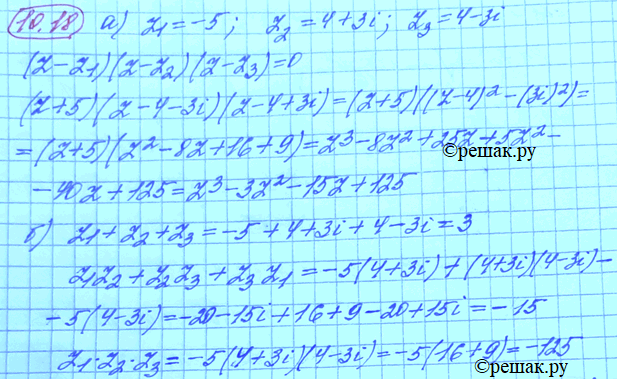 10.18 а) z₁ = -5; z₂ = 4+3i; z₃ = 4-3i
(z-z₁)(z-z₂)(z-z₃)=0
(z+5)(z-4-3i)(z-4+3i)=(z+5)((z-4)²-(3i)²)=
=(z+5)(z²-8z+16+9)=z³-8z²+25z+5z²-
©решак.ру
-40z+125=z³-3z²-15z+125
б) z₁+z₂+z₃=-5+4+3i+4-3i=3
z₁z₂+z₂z₃+z₃z₁=-5(4+3i)+(4+3i)(4-3i)-
-5(4-3i)=-20-15i+16+9-20+15i=-15
z₁·z₂·z₃=-5(4+3i)(4-3i)=-5(16+9)=-125
©решак.ру